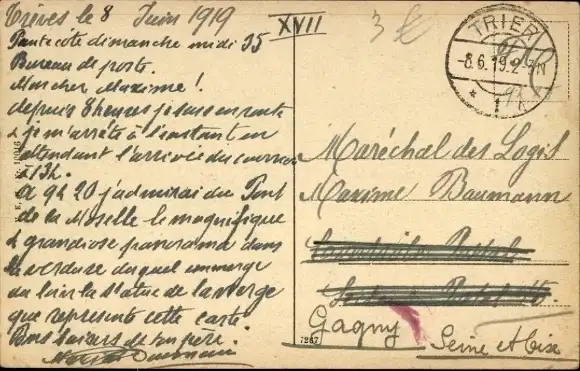 Trèves le 8 Juin 1919
Pentecôte dimanche midi 35
Bureau de poste.
Mon cher Maxime!
depuis 8 heures je suis en route
& je m'arrête à l'instant en
attendant l'arrivée du courrier
à 13h.
A 9h 20 j'admirai du Pont
de la Moselle le magnifique
& grandiose panorama dans
la verdure duquel emmerge
au loin la Statue de la vierge
que represente cette carte
Bons baisers de ton père.
Baumann
XVII
3 €
TRIER
-8.6.19.2-
* 1
Maréchal des Logis
Maxime Baumann
Gagny
Seine et Oise
7267